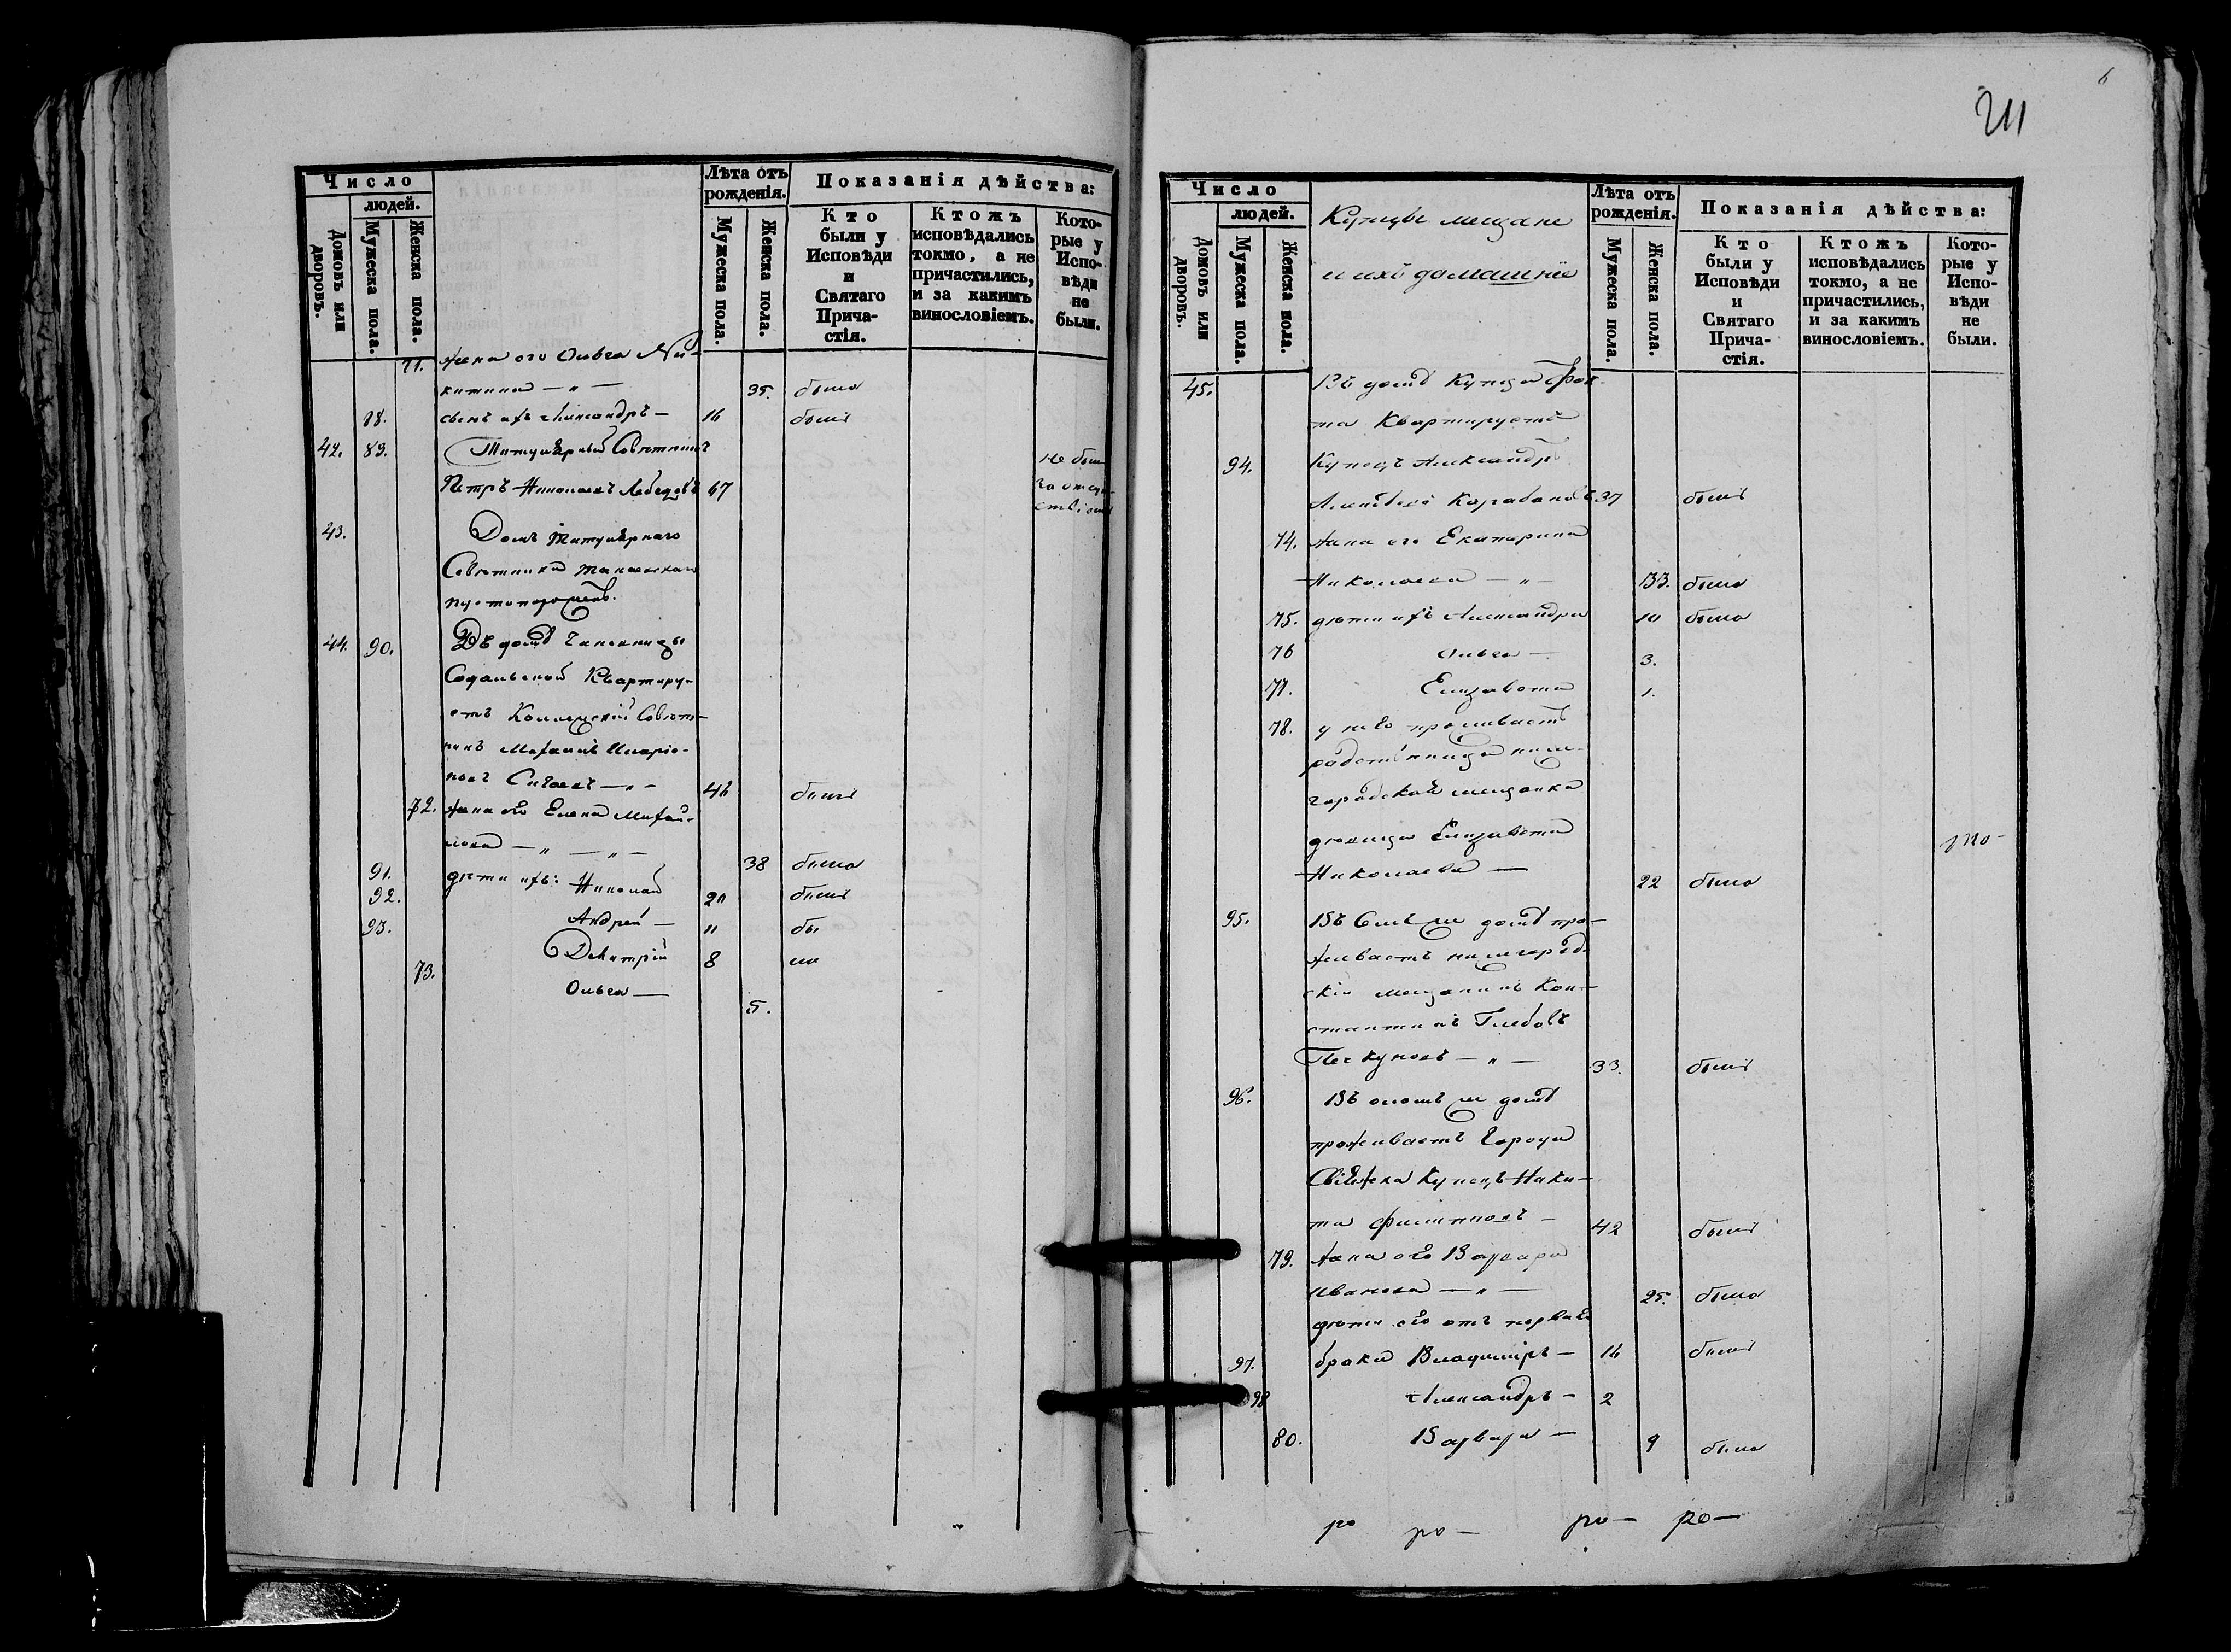 Число
людей.
Домовъ или дворовъ.
Мужеска пола.
Женска пола.
Лѣта отъ рожденія.
Мужеска пола.
Женска пола.
Показанія дѣйства:
Кто были у Исповѣди и Святаго Причастія.
Ктожъ исповѣдались токмо, а не причастились, и за какимъ винословіемъ.
Которые у Исповѣди не были.
71. жена его Ольга Ни-
китина — „ — 35. была
88. сынъ ихъ Александръ — 16 былъ
42. 89. Титулярный Совѣтникъ не былъ
Петръ Николаевъ Лебедевъ 67 за отсут-
ствіемъ
43. Домъ Титулярнаго
Совѣтника
пустопорожній.
44. 90. Въ домѣ
Квартиру-
етъ Коллежскій Совѣт-
никъ Михаилъ Иларіо-
новъ — „ — 46 былъ
72. жена его Елена Михай-
лова — „ — „ — 38 была
91. дѣти ихъ: Николай 20 былъ
92. Андрей — 11 бы
93. Димитрій 8 ли
73. Ольга — 5.
6
211
Число
людей.
Домовъ или дворовъ.
Мужеска пола.
Женска пола.
Купцы мещане
и ихъ домашніе
Лѣта отъ рожденія.
Мужеска пола.
Женска пола.
Показанія дѣйства:
Кто были у Исповѣди и Святаго Причастія.
Ктожъ исповѣдались токмо, а не причастились, и за какимъ винословіемъ.
Которые у Исповѣди не были.
45. Въ домѣ Купца
Квартируетъ
94. Купецъ Александръ
Алексѣевъ Карабановъ 37 былъ
74. жена его Екатерина
Николаева — „ — 33. была
75. дѣти ихъ Александра 10 была
76 Ольга — 3.
77. Елизавета 1.
78. у него проживаетъ
родственница ниже-
городской мещанка
дѣвица Елизавета
Николаева — 22 была
95. Въ семъ же домѣ про-
живаетъ нижегород-
скій мещанинъ Кон-
стантинъ Глебовъ
— „ — 33. былъ
96. Въ ономъ же домѣ
проживаетъ города
Свіяжска Купецъ Ники-
та Филиповъ — 42 былъ
79. жена его Варвара
Иванова — „ — 25. была
дѣти его отъ перваго
97. брака Владиміръ — 16 былъ
98 Александръ — 2
80. Варвара — 9 была
ро ро — ро — ро —